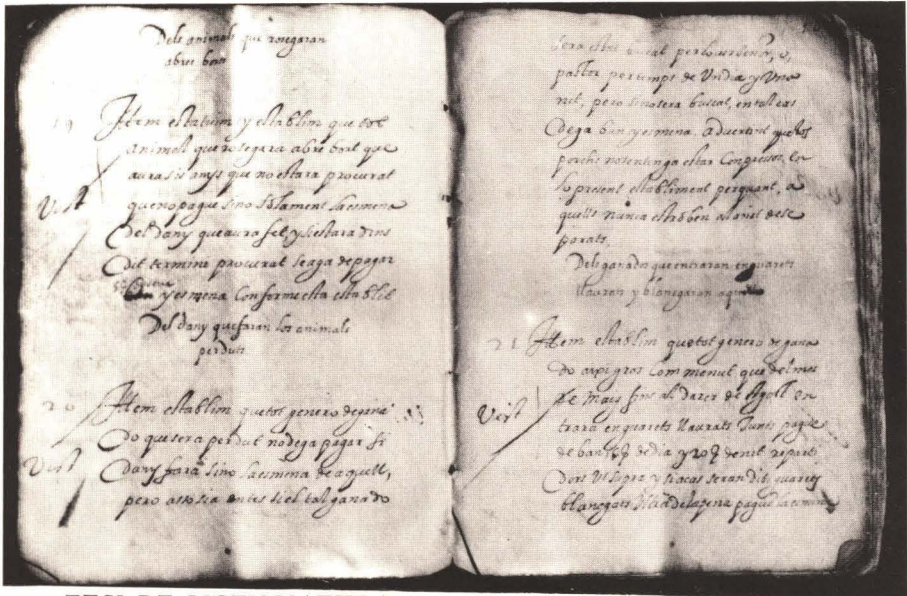 Dels animals que rosegaran
abres bort
19 Item estatuim y establim que tot
animal que rosegara abre bort que
auras is amss que no estara procurat
que no pague sino solament la esmena
del dany que aura fet, y si estara dins
dit termini procurat se aga de pagar
y esmena conforme esta establit
Del dany que faran los animals
perduts
20 Item establim que tot genero de gana
do que sera perdut no dega pagar si
Vist
dany fara sino la esmena de aquell,
pero asso sia antes si el tal ganado
Vist
sera estat buscat per lo
pastor per temps de Un dia y Una
nit, pero si no sera buscat, en tal cas
dega ban y esmena. advertint que los
porchs no s entinga estar Compresos en
lo present establiment perquant, a
quells nunca estroben
parats.
Dels ganados que entraran en guarets
llaurats y blanegaran aquells
21 Item establim que tot genero de gana
do axi gros Com menut que del mes
Vist
de Mags fins al darer de Agost en
trara en guarets llaurats Junts pague
de ban de dia y 20 de nit reparti
dors Ut supra y si acas seran dits guarets
blanegats Ultra de la pena pague la esmena